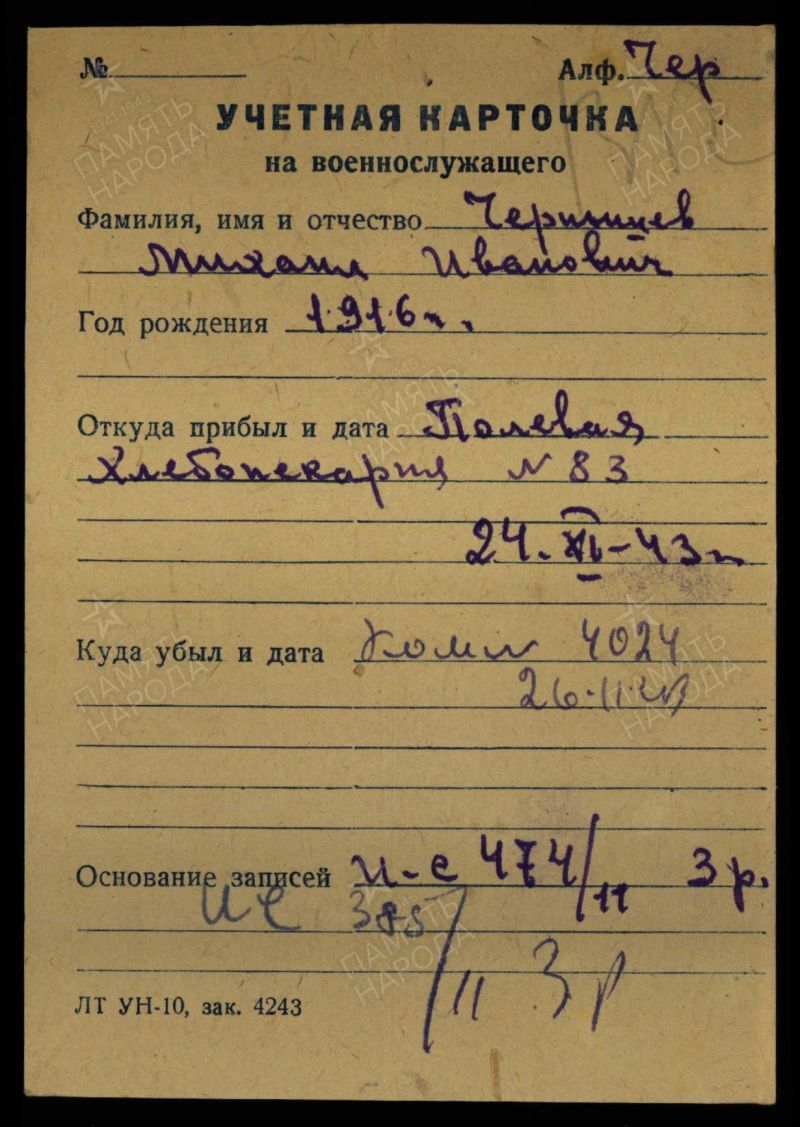 № Алф. Чер
УЧЕТНАЯ КАРТОЧКА
на военнослужащего
Фамилия, имя и отчество
Михаил Иванович
Год рождения 1916 г.
Откуда прибыл и дата Полевая
хлебопекарня N 83
24. XI-43 г
Куда убыл и дата 4024
26.11.43
Основание записей и-с 474/11 3 р.
ИС 385/11 3 р
ЛТ УН-10, зак. 4243